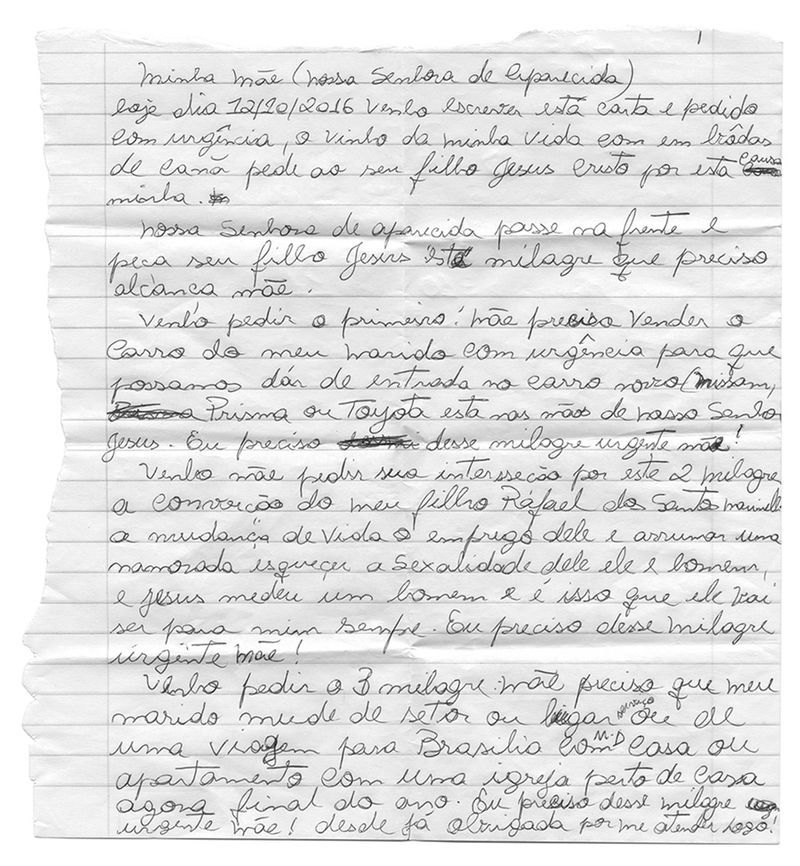 1
Minha Mãe (nossa Senhora de Aparecida)
hoje dia 12/10/2016 venho escrever está carta e pedido
com urgência, o vinho da minha vida com em brôdas
de canã pede ao seu filho Jesus Cristo por esta causa
minha.
Nossa Senhora de aparecida passe na frente e
peça seu filho Jesus está milagre que preciso
alcança mãe.
Venho pedir o primeiro! Mãe preciso vender o
Carro do meu marido com urgência para que
possamos dár de entrada no carro novo (Nissam,
Prisma ou Toyota esta nas mãos de nosso Senho
Jesus. Eu preciso desse milagre urgente mãe!
Venho mãe pedir sua intersseção por este 2 milagre
a conversão do meu filho Ráfael dos Santos
a mudança de vida o emprego dele e arrumar uma
namorada esqueçer a Sexalidade dele ele e homem,
e Jesus medeu um homem e é isso que ele vai
ser para mim sempre. Eu preciso desse milagre
urgênte Mãe!
Venho pedir o 3 milagre. mãe preciso que meu
marido mude de setor ou lugar serviço ou de
uma viagem para Brasilia com M.D casa ou
apartamento com uma igreja perto de casa
agora final do ano. Eu preciso desse milagre
urgente mãe! desde já obrigada por me atender logo!